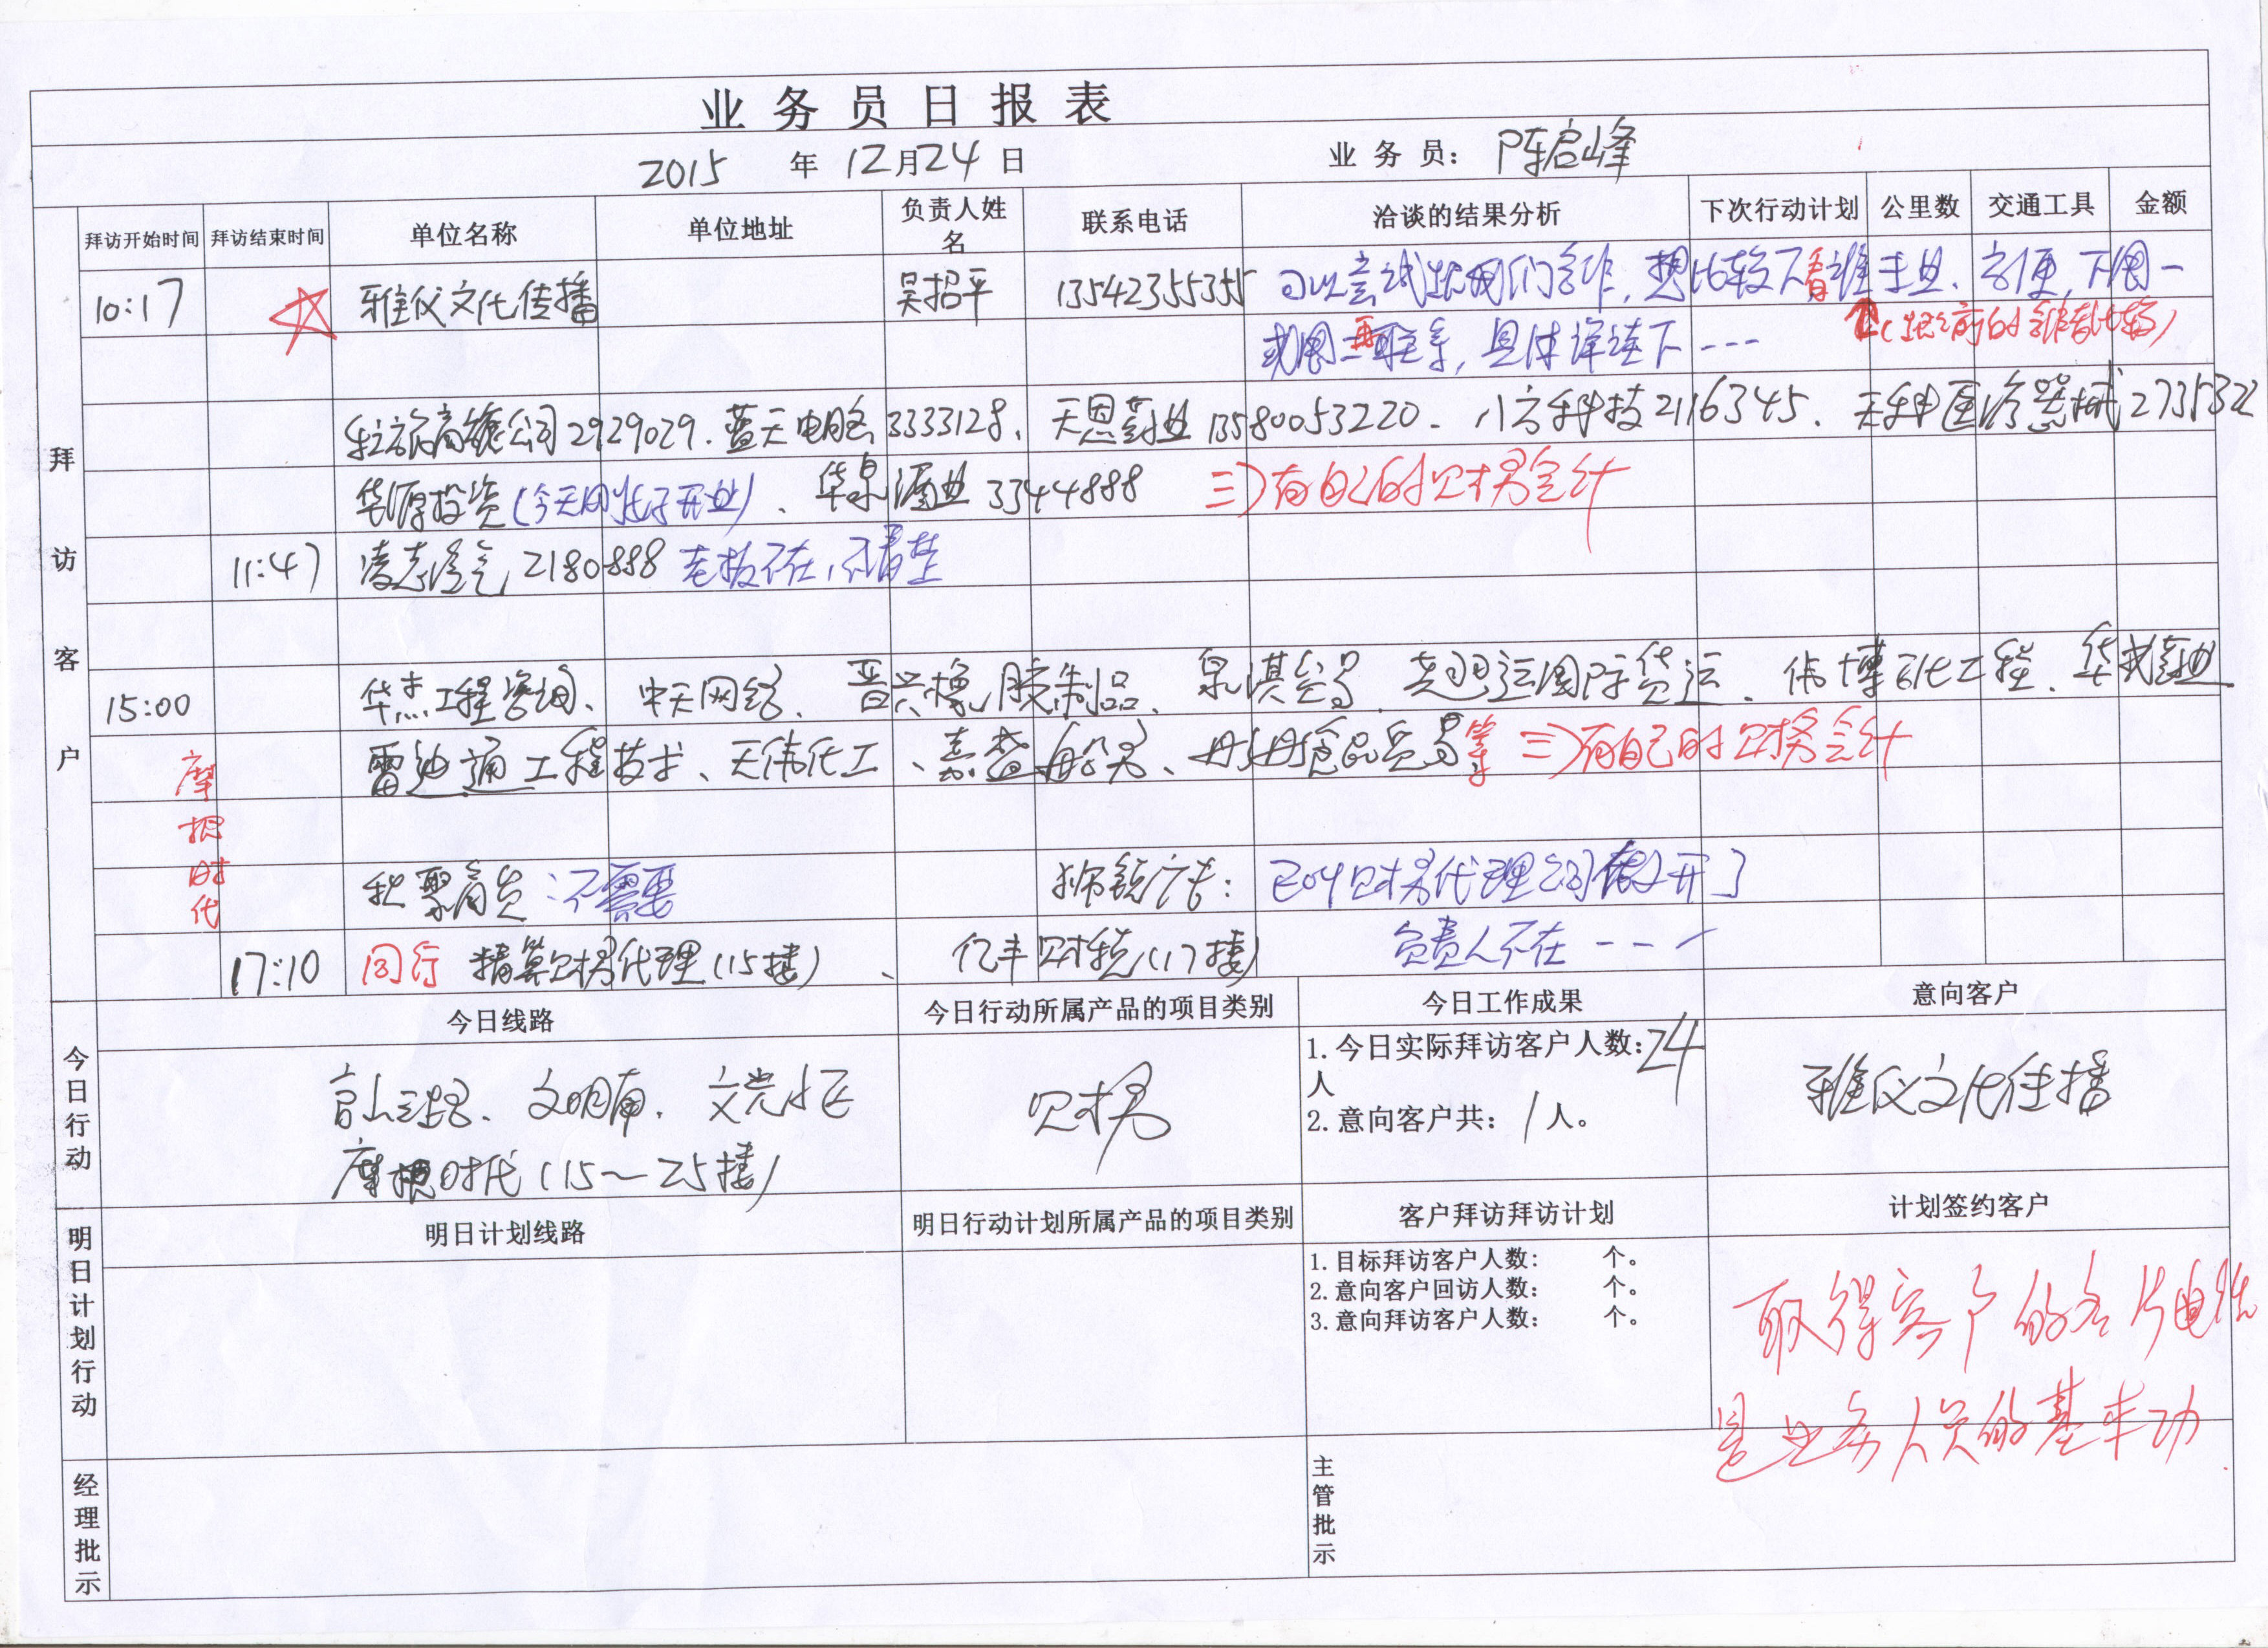 业务员日报表
2015 年 12月24日 业务员: 陈启峰
拜访客户
拜访开始时间 拜访结束时间 单位名称 单位地址 负责人姓名 联系电话 洽谈的结果分析 下次行动计划 公里数 交通工具 金额
10:17 雅仪文化传播 吴招平 13542355355 可以尝试跟我们合作,想比较下看谁专业、方便,下周一
或周二再联系,具体详谈下---
(跟之前的 比较)
公司2929029、蓝天电脑3333128、天恩药业13580053220、八方科技2116345、天科医疗器械273532
华源投资(今天刚好开业)、华泉酒业3344888 三)有自己的财务会计
11:47 凌志冷气2180888 老板不在,不清楚
15:00 华杰工程咨询、中天网络、晋兴橡胶制品、泉淇贸易、超运国际货运、伟博化工程、华 药业
雷迪通工程技术、天伟化工、嘉盛船务、丹丹食品贸易等 三)有自己的财务会计
摩根时代
秋聚商贸:不需要 广告: 已叫财务代理公司在开了
17:10 同行 精算财务代理(15楼)、亿丰财税(17楼) 负责人不在---
今日行动
今日线路 今日行动所属产品的项目类别 今日工作成果 意向客户
文明南、文光小区
摩根时代(15~25楼)
财务
1.今日实际拜访客户人数:24人
2.意向客户共: 1人。
雅仪文化传播
明日计划行动
明日计划线路 明日行动计划所属产品的项目类别 客户拜访拜访计划 计划签约客户
1.目标拜访客户人数: 个。
2.意向客户回访人数: 个。
3.意向拜访客户人数: 个。
取得客户的名片电话
是业务人员的基本功.
经理批示
主管批示